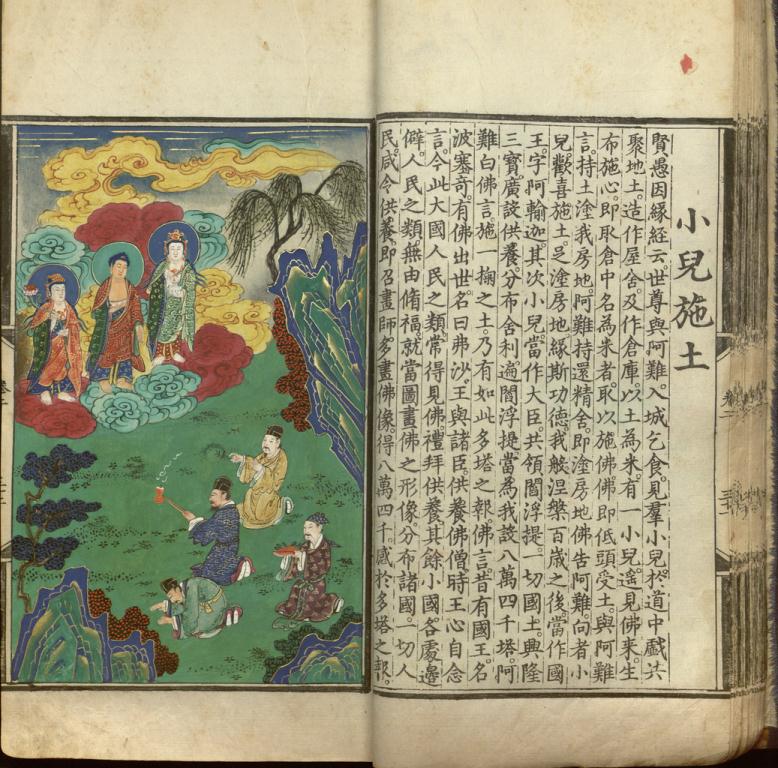 小兒施土
賢愚因緣經云。世尊與阿難。入城乞食。見羣小兒於道中戲。共
聚地土。造作屋舍。及作倉庫。以土為米。有一小兒。遙見佛來。生
布施心。即取倉中名為米者。取以施佛。佛即低頭受土。與阿難
言。持土塗我房地。阿難持還精舍。即塗房地。佛告阿難。向者小
兒。歡喜施土。足塗房地。緣斯功德。我般涅槃百歲之後。當作國
王。字阿輸迦。其次小兒。當作大臣。共領閻浮提。一切國土。興隆
三寶。廣設供養。分布舍利。遍閻浮提。當為我設八萬四千塔。阿
難白佛言。施一掬之土。乃有如此多塔之報。佛言。昔有國王。名
波塞奇。有佛出世。名曰弗沙。王與諸臣。供養佛僧。時王心自念
言。今此大國。人民之類。常得見佛。禮拜供養。其餘小國。各處邊
僻。人民之類。無由脩福。就當圖畫佛之形像。分布諸國。一切人
民。咸令供養。即召畫師。多畫佛像。得八萬四千。感於多塔之報。